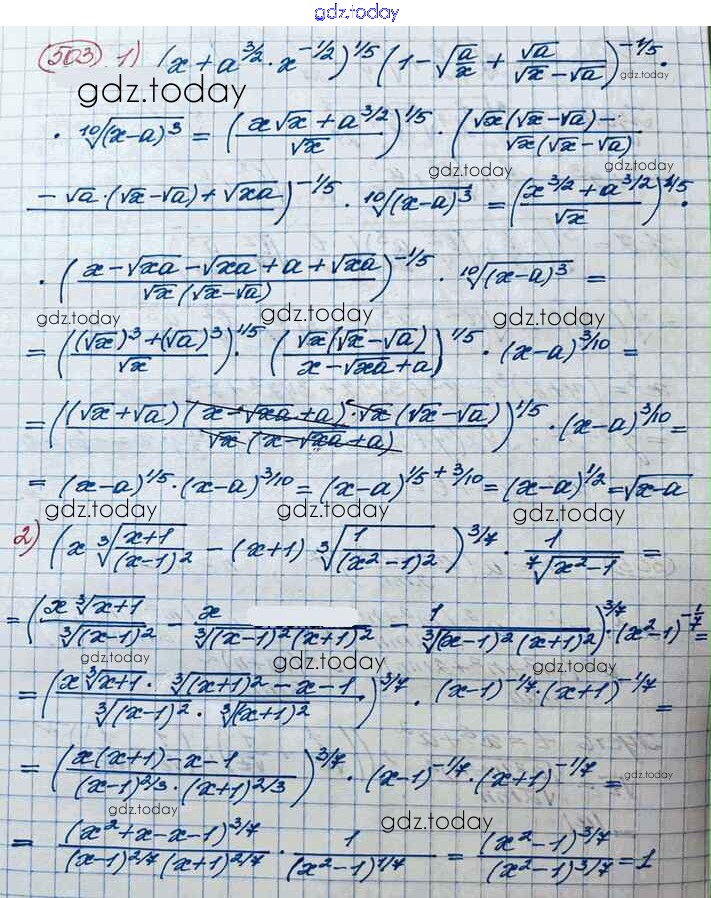 gdz.today
503 1) (x + a^{3/2} · x^{-1/2})^{1/5} (1 - √(a/x) + √a/(√x - √a))^{-1/5} ·
gdz.today
gdz.today
· ¹⁰√((x-a)^3) = ((x√x + a^{3/2})/√x)^{1/5} · ((√x(√x-√a) -)/(√x(√x-√a))
gdz.today
gdz.today
(-√a·(√x-√a)+√xa))^{-1/5} · ¹⁰√((x-a)^3) = ((x^{3/2} + a^{3/2})/√x)^{1/5} ·
· ((x-√xa-√xa+a+√xa)/(√x(√x-√a)))^{-1/5} · ¹⁰√((x-a)^3) =
gdz.today gdz.today gdz.today
= (((√x)^3+(√a)^3)/√x)^{1/5} · ((√x(√x-√a))/(x-√xa+a))^{1/5} · (x-a)^{3/10} =
= (((√x+√a)(x-√xa+a)·√x(√x-√a))/(√x(x-√xa+a)))^{1/5} · (x-a)^{3/10} =
= (x-a)^{1/5}·(x-a)^{3/10} = (x-a)^{1/5+3/10} = (x-a)^{1/2} = √(x-a)
gdz.today gdz.today gdz.today
2) (x ³√((x+1)/(x-1)^2) - (x+1) ³√(1/(x^2-1)^2))^{3/7} · 1/⁷√(x^2-1) =
= ((x ³√(x+1))/³√((x-1)^2) - x/³√((x-1)^2(x+1)^2) - 1/³√((x-1)^2(x+1)^2))^{3/7} · (x^2-1)^{-1/7} =
gdz.today gdz.today gdz.today
= ((x ³√(x+1) · ³√((x+1)^2) - x - 1)/(³√((x-1)^2) · ³√((x+1)^2)))^{3/7} · (x-1)^{-1/7}·(x+1)^{-1/7} =
= ((x(x+1)-x-1)/((x-1)^{2/3}·(x+1)^{2/3}))^{3/7} · (x-1)^{-1/7}·(x+1)^{-1/7} =
gdz.today
gdz.today gdz.today
= (x^2+x-x-1)^{3/7}/((x-1)^{2/7}(x+1)^{2/7}) · 1/(x^2-1)^{1/7} = (x^2-1)^{3/7}/(x^2-1)^{3/7} = 1
gdz.today